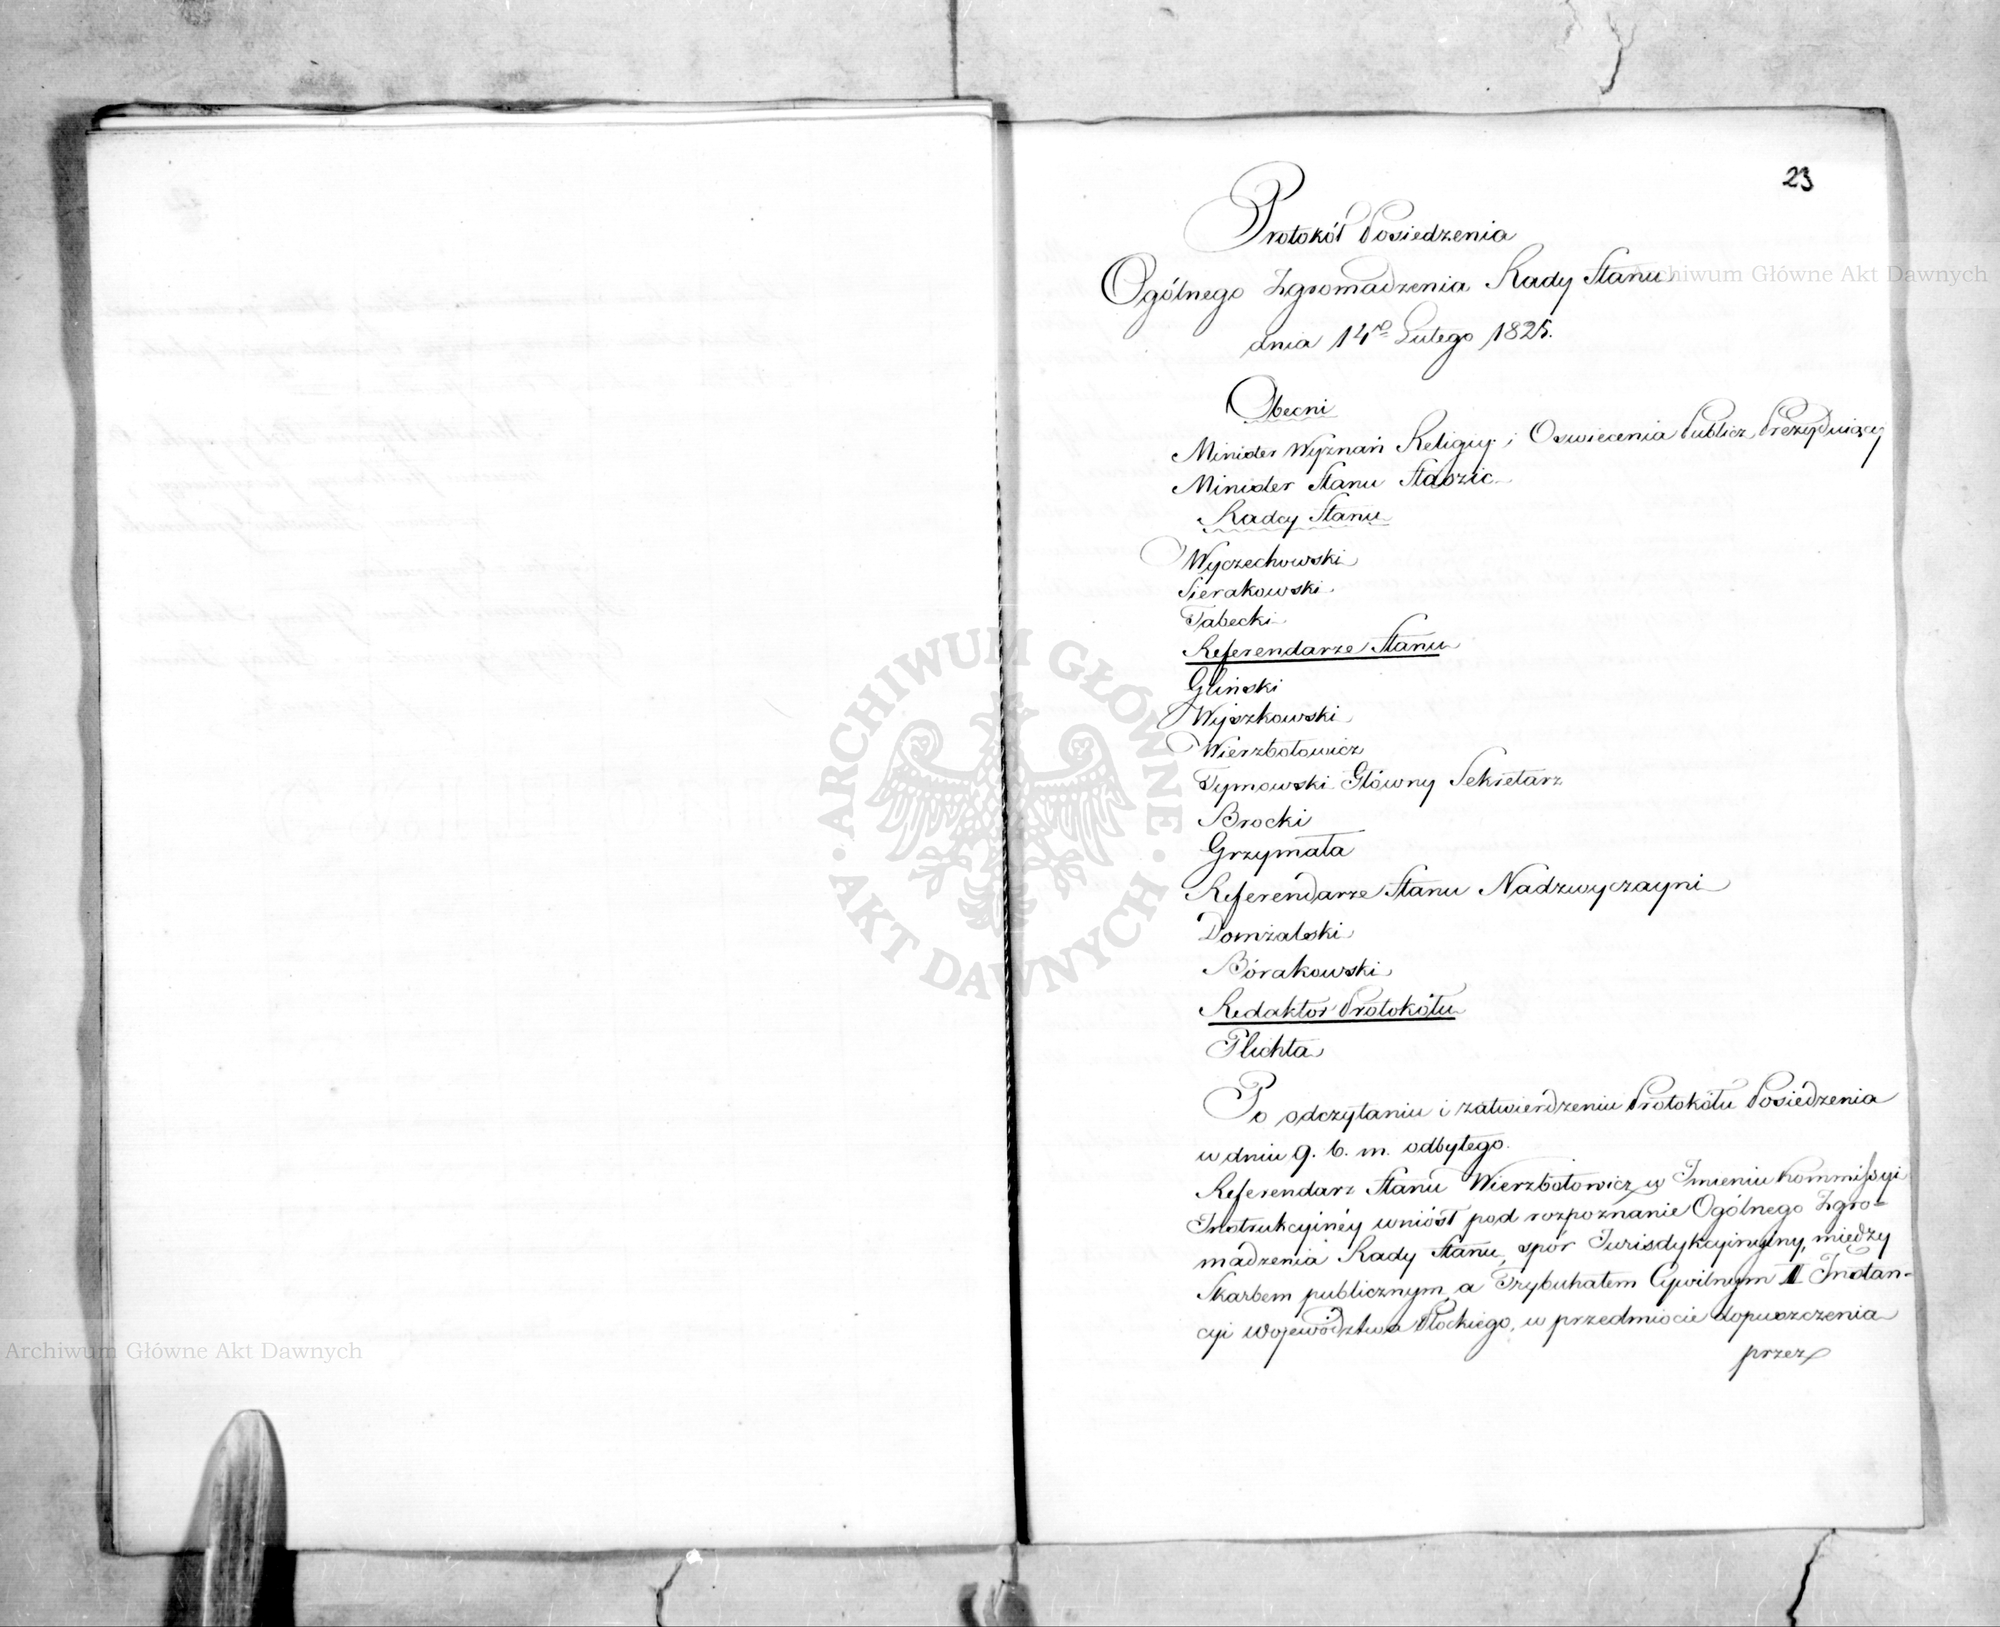 23
Protokół Posiedzenia
Ogólnego Zgromadzenia Rady Stanu
dnia 14go Lutego 1825.
Obecni
Minister Wyznań Religiy: i Oswiecenia Publicz. Prezyduiący
Minister Stanu Staszic
Radcy Stanu
Wyczechowski
Sierakowski
Tabecki
Referendarze Stanu
Gliński
Wyszkowski
Wierzbołowicz
Tymowski Główny Sekretarz
Brocki
Grzymała
Referendarze Stanu Nadzwyczayni
Domżalski
Bórakowski
Redaktor Protokółu
Plichta
Po odczytaniu i zatwierdzeniu Protokółu Posiedzenia
w dniu 9. b. m. odbytego.
Referendarz Stanu Wierzbołowicz w Imieniu Kommissyi
Instrukcyinéy wniósł pod rozpoznanie Ogólnego Zgro-
madzenia Rady Stanu, spór Jurisdykcyinyiny, między
Skarbem publicznym, a Trybunałem Cywilnym II Instan-
cyi Województwa Płockiego, w przedmiocie dopuszczenia
przez
Archiwum Główne Akt Dawnych
Archiwum Główne Akt Dawnych
ARCHIWUM GŁÓWNE · AKT DAWNYCH ·